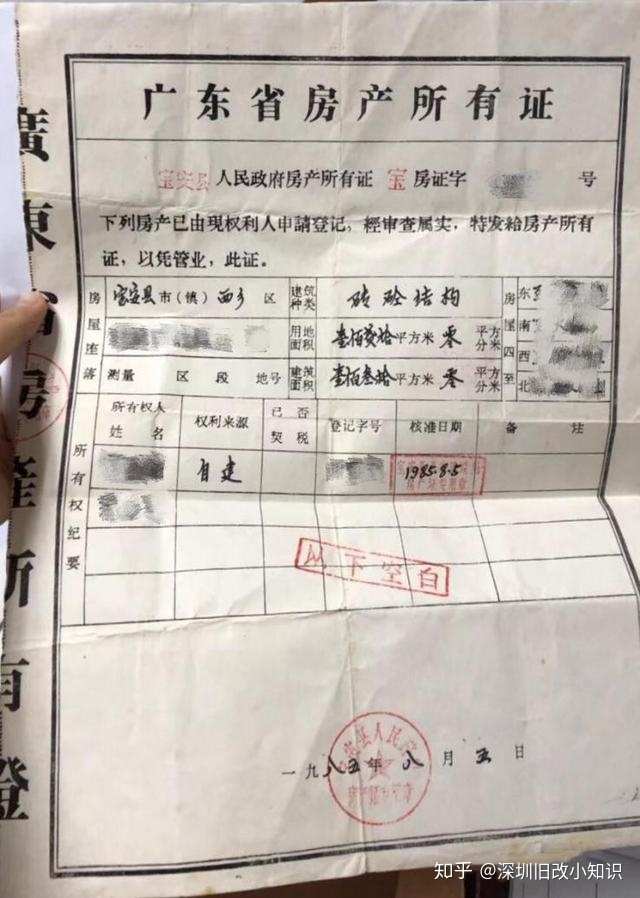 广东省房产所有证
宝安县人民政府房产所有证 宝 房证字 号
下列房产已由现权利人申請登记，經审查属实，特发給房产所有
证，以凭管业，此证。
房屋座落 宝安县市（镇）西乡 区 建筑种类 砖砼结构 房屋四至 东
用地面积 壹佰贰拾平方米 零 平方分米 南
西
测量 区 段 地号 建筑面积 壹佰叁拾平方米 零 平方分米 北
所有权纪要
所有权人姓名 权利来源 已否契税 登记字号 核准日期 备 注
自建 1985.8.5
以下空白
一九八五年八月五日
廣東省房產所有證
知乎 @深圳旧改小知识